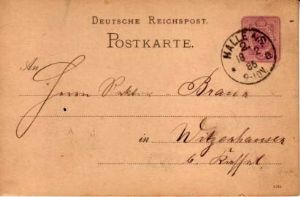 DEUTSCHE REICHSPOST.
POSTKARTE.
HALLE A/S.
2
85
An Herrn Braun
in Witzenhausen
b. Kassel